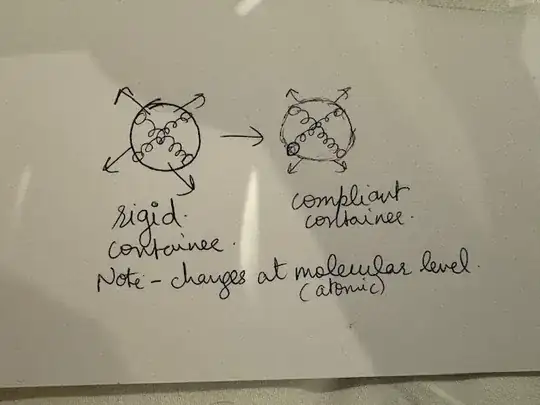 rigid.
container.
compliant
container.
Note - changes at molecular level.
(atomic)